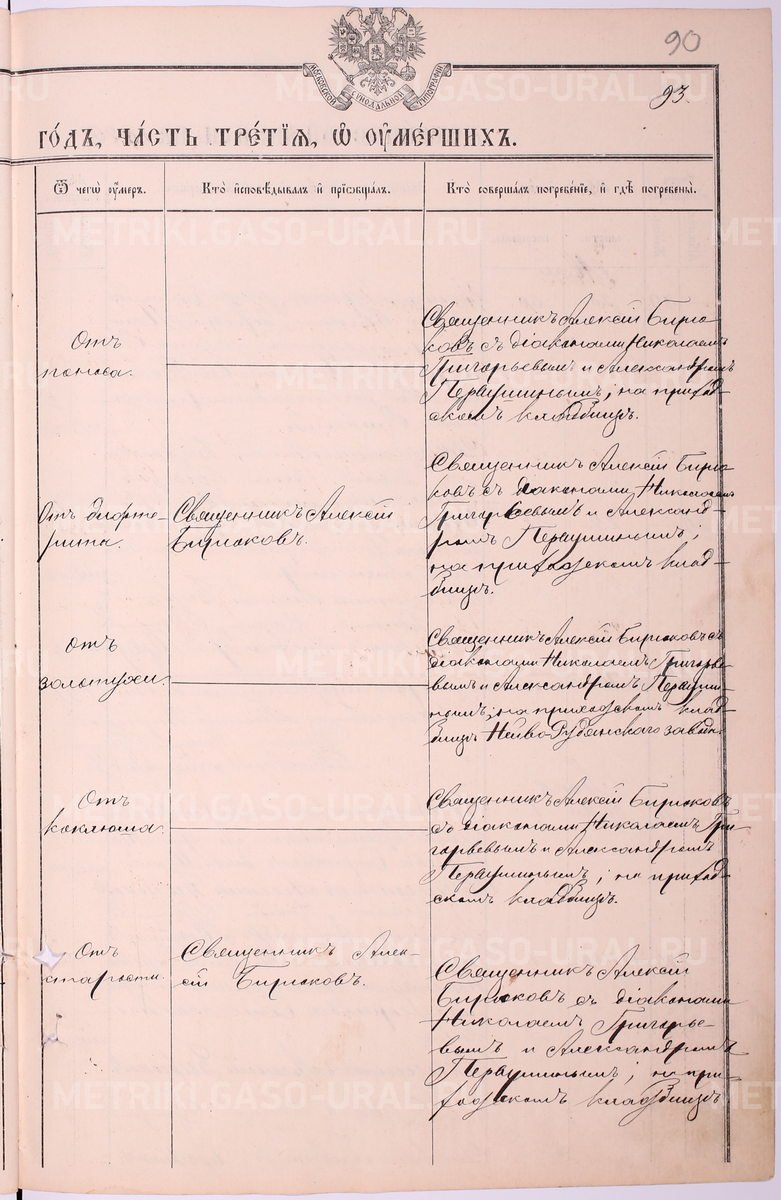 90
93.
МОСКОВСКОЙ СѴНОДАЛЬНОЙ ТИПОГРАФІИ
ГО́ДЪ, ЧА́СТЬ ТРЕ́ТЇѦ, Ѡ҆ ОУ҆МЕ́РШИХЪ.
Ѿ чегѡ̀ оу҆́меръ.
Кто̀ и҆сповѣ́дывалъ и҆ прїѡбща́лъ.
Кто̀ соверша́лъ погребе́нїе, и҆ гдѣ̀ погребены̀.
Отъ
поноса.
Священникъ Алексій Бирю-
ковъ съ діаконами Николаемъ
Григорьевымъ и Александромъ
Первушинымъ; на приход-
скомъ кладбищѣ.
Отъ дифте-
рита.
Священникъ Алексій
Бирюковъ.
Священникъ Алексій Бирю-
ковъ съ діаконами Николаемъ
Григорьевымъ и Александ-
ромъ Первушинымъ;
на приходскомъ клад-
бищѣ.
Отъ
золотухи.
Священникъ Алексій Бирюковъ съ
діаконами Николаемъ Григорье-
вымъ и Александромъ Первуши-
нымъ; на приходскомъ клад-
бищѣ Нейво-Рудянскаго завода.
Отъ
коклюша.
Священникъ Алексій Бирюковъ
съ діаконами Николаемъ Гри-
горьевымъ и Александромъ
Первушинымъ; на приход-
скомъ кладбищѣ.
Отъ
старости.
Священникъ Алек-
сій Бирюковъ.
Священникъ Алексій
Бирюковъ съ діаконами
Николаемъ Григорье-
вымъ и Александромъ
Первушинымъ; на при-
ходскомъ кладбищѣ
METRIKI.GASO-URAL.RU